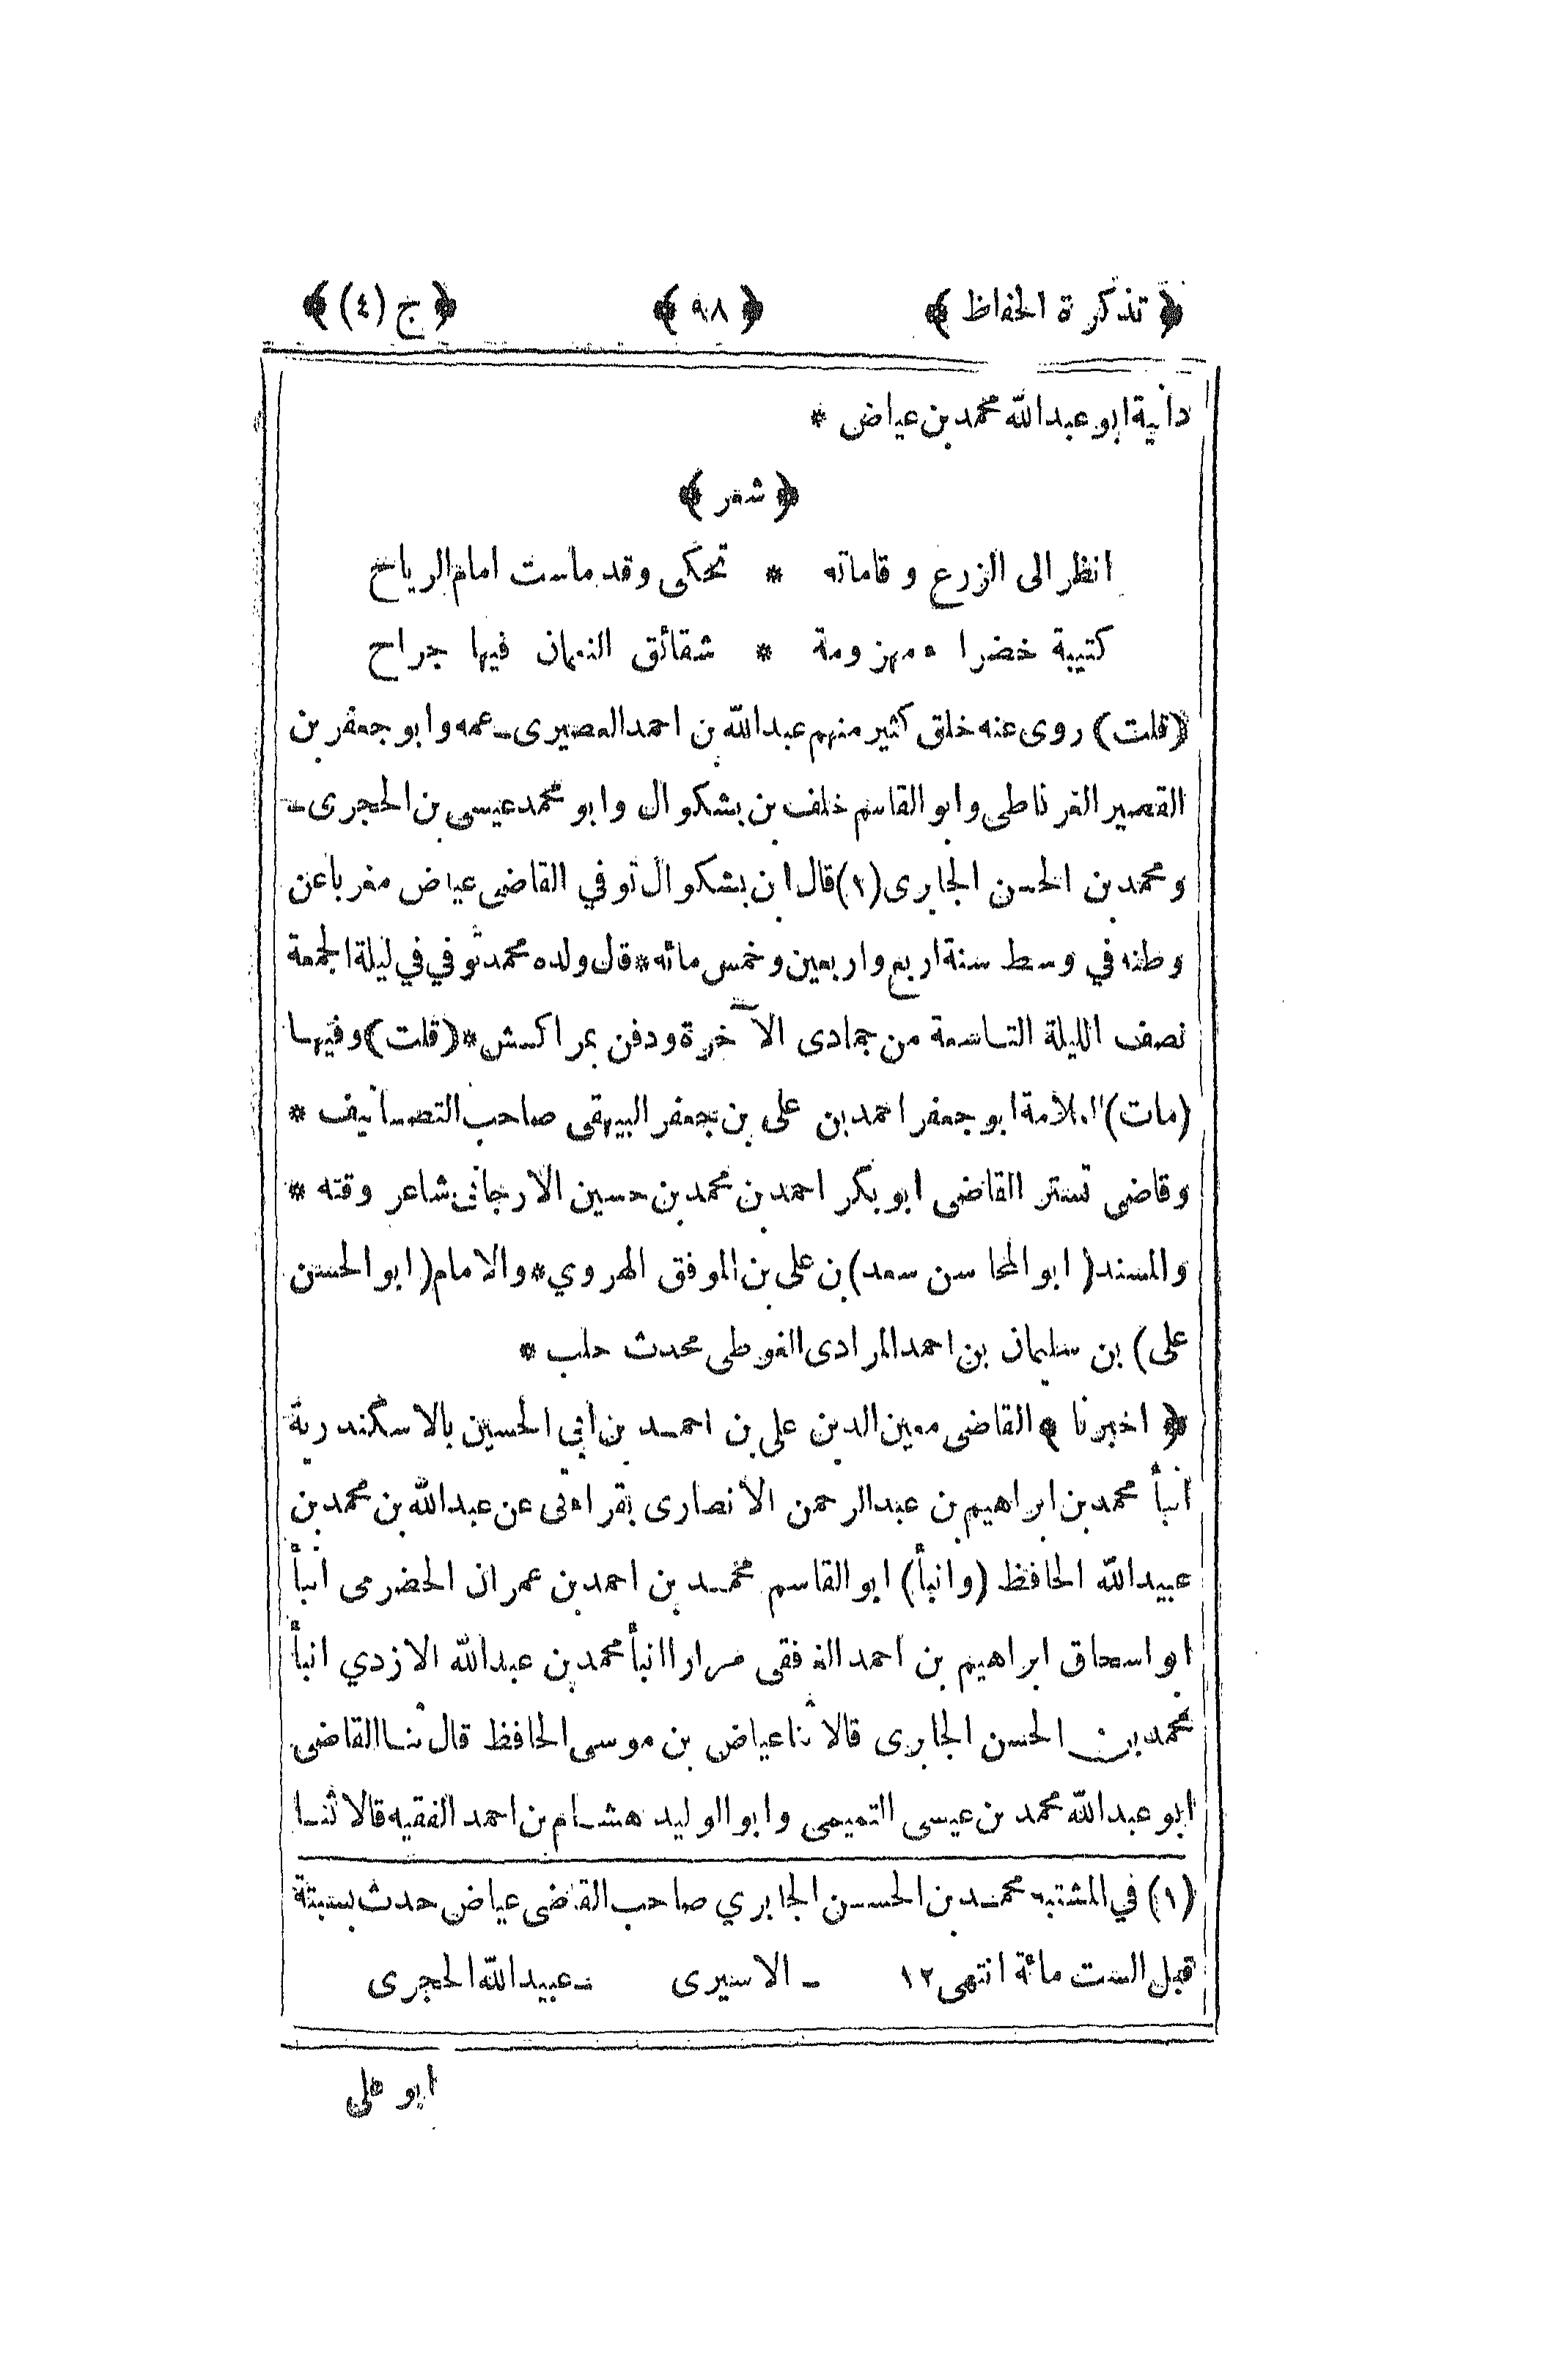 ﴿ تذكرة الحفاظ ﴾ ﴿ ٩٨ ﴾ ﴿ ج (٤) ﴾
دانية ابو عبدالله محمد بن عياض *
﴿ شعر ﴾
انظر الى الزرع و قاماته * تحكى و قد ماست امام الرياح
كتيبة خضراء مهزومة * شقائق النعمان فيها جراح
(قلت) روى عنه خلق كثير منهم عبدالله بن احمد العصيرى ـ عمه وابو جعفر بن
القصير الغرناطى وابو القاسم خلف بن بشكوال وابو محمد عيسى بن الحجرى ـ
ومحمد بن الحسن الجابرى (١) قال ابن بشكوال توفي القاضى عياض مغربا عن
وطنه في وسط سنة اربع واربعين وخمس مائه * قال ولده محمد توفي في ليلة الجمعة
نصف الليلة التاسعة من جمادى الآخرة ودفن بمراكش * (قلت) وفيها
(مات) العلامة ابو جعفر احمد بن على بن جعفر البيهقى صاحب التصانيف *
وقاضى تستر القاضى ابو بكر احمد بن محمد بن حسين الارجانى شاعر وقته *
والمسند (ابو المحاسن سعد) بن على بن الموفق الهروي * والامام (ابو الحسن
على) بن سليمان بن احمد المرادى الغوطى محدث حلب *
﴿ اخبرنا ﴾ القاضى معين الدين على بن احمد بن ابي الحسين بالاسكندرية
انبأ محمد بن ابراهيم بن عبدالرحمن الانصارى بقراءتى عن عبدالله بن محمد بن
عبيدالله الحافظ (وانبأ) ابو القاسم محمد بن احمد بن عمران الحضرمى انبأ
ابو اسحاق ابراهيم بن احمد الغافقى مرارا انبأ محمد بن عبدالله الازدي انبأ
محمد بن الحسن الجابرى قالا ثنا عياض بن موسى الحافظ قال ثنا القاضى
ابو عبدالله محمد بن عيسى التميمى وابو الوليد هشام بن احمد الفقيه قالا ثنا
(١) في المشتبه محمد بن الحسن الجابري صاحب القاضى عياض حدث بسبتة
قبل الست مائة انتهى ١٢ ـ الاسيرى ـ عبيدالله الحجرى
ابو على